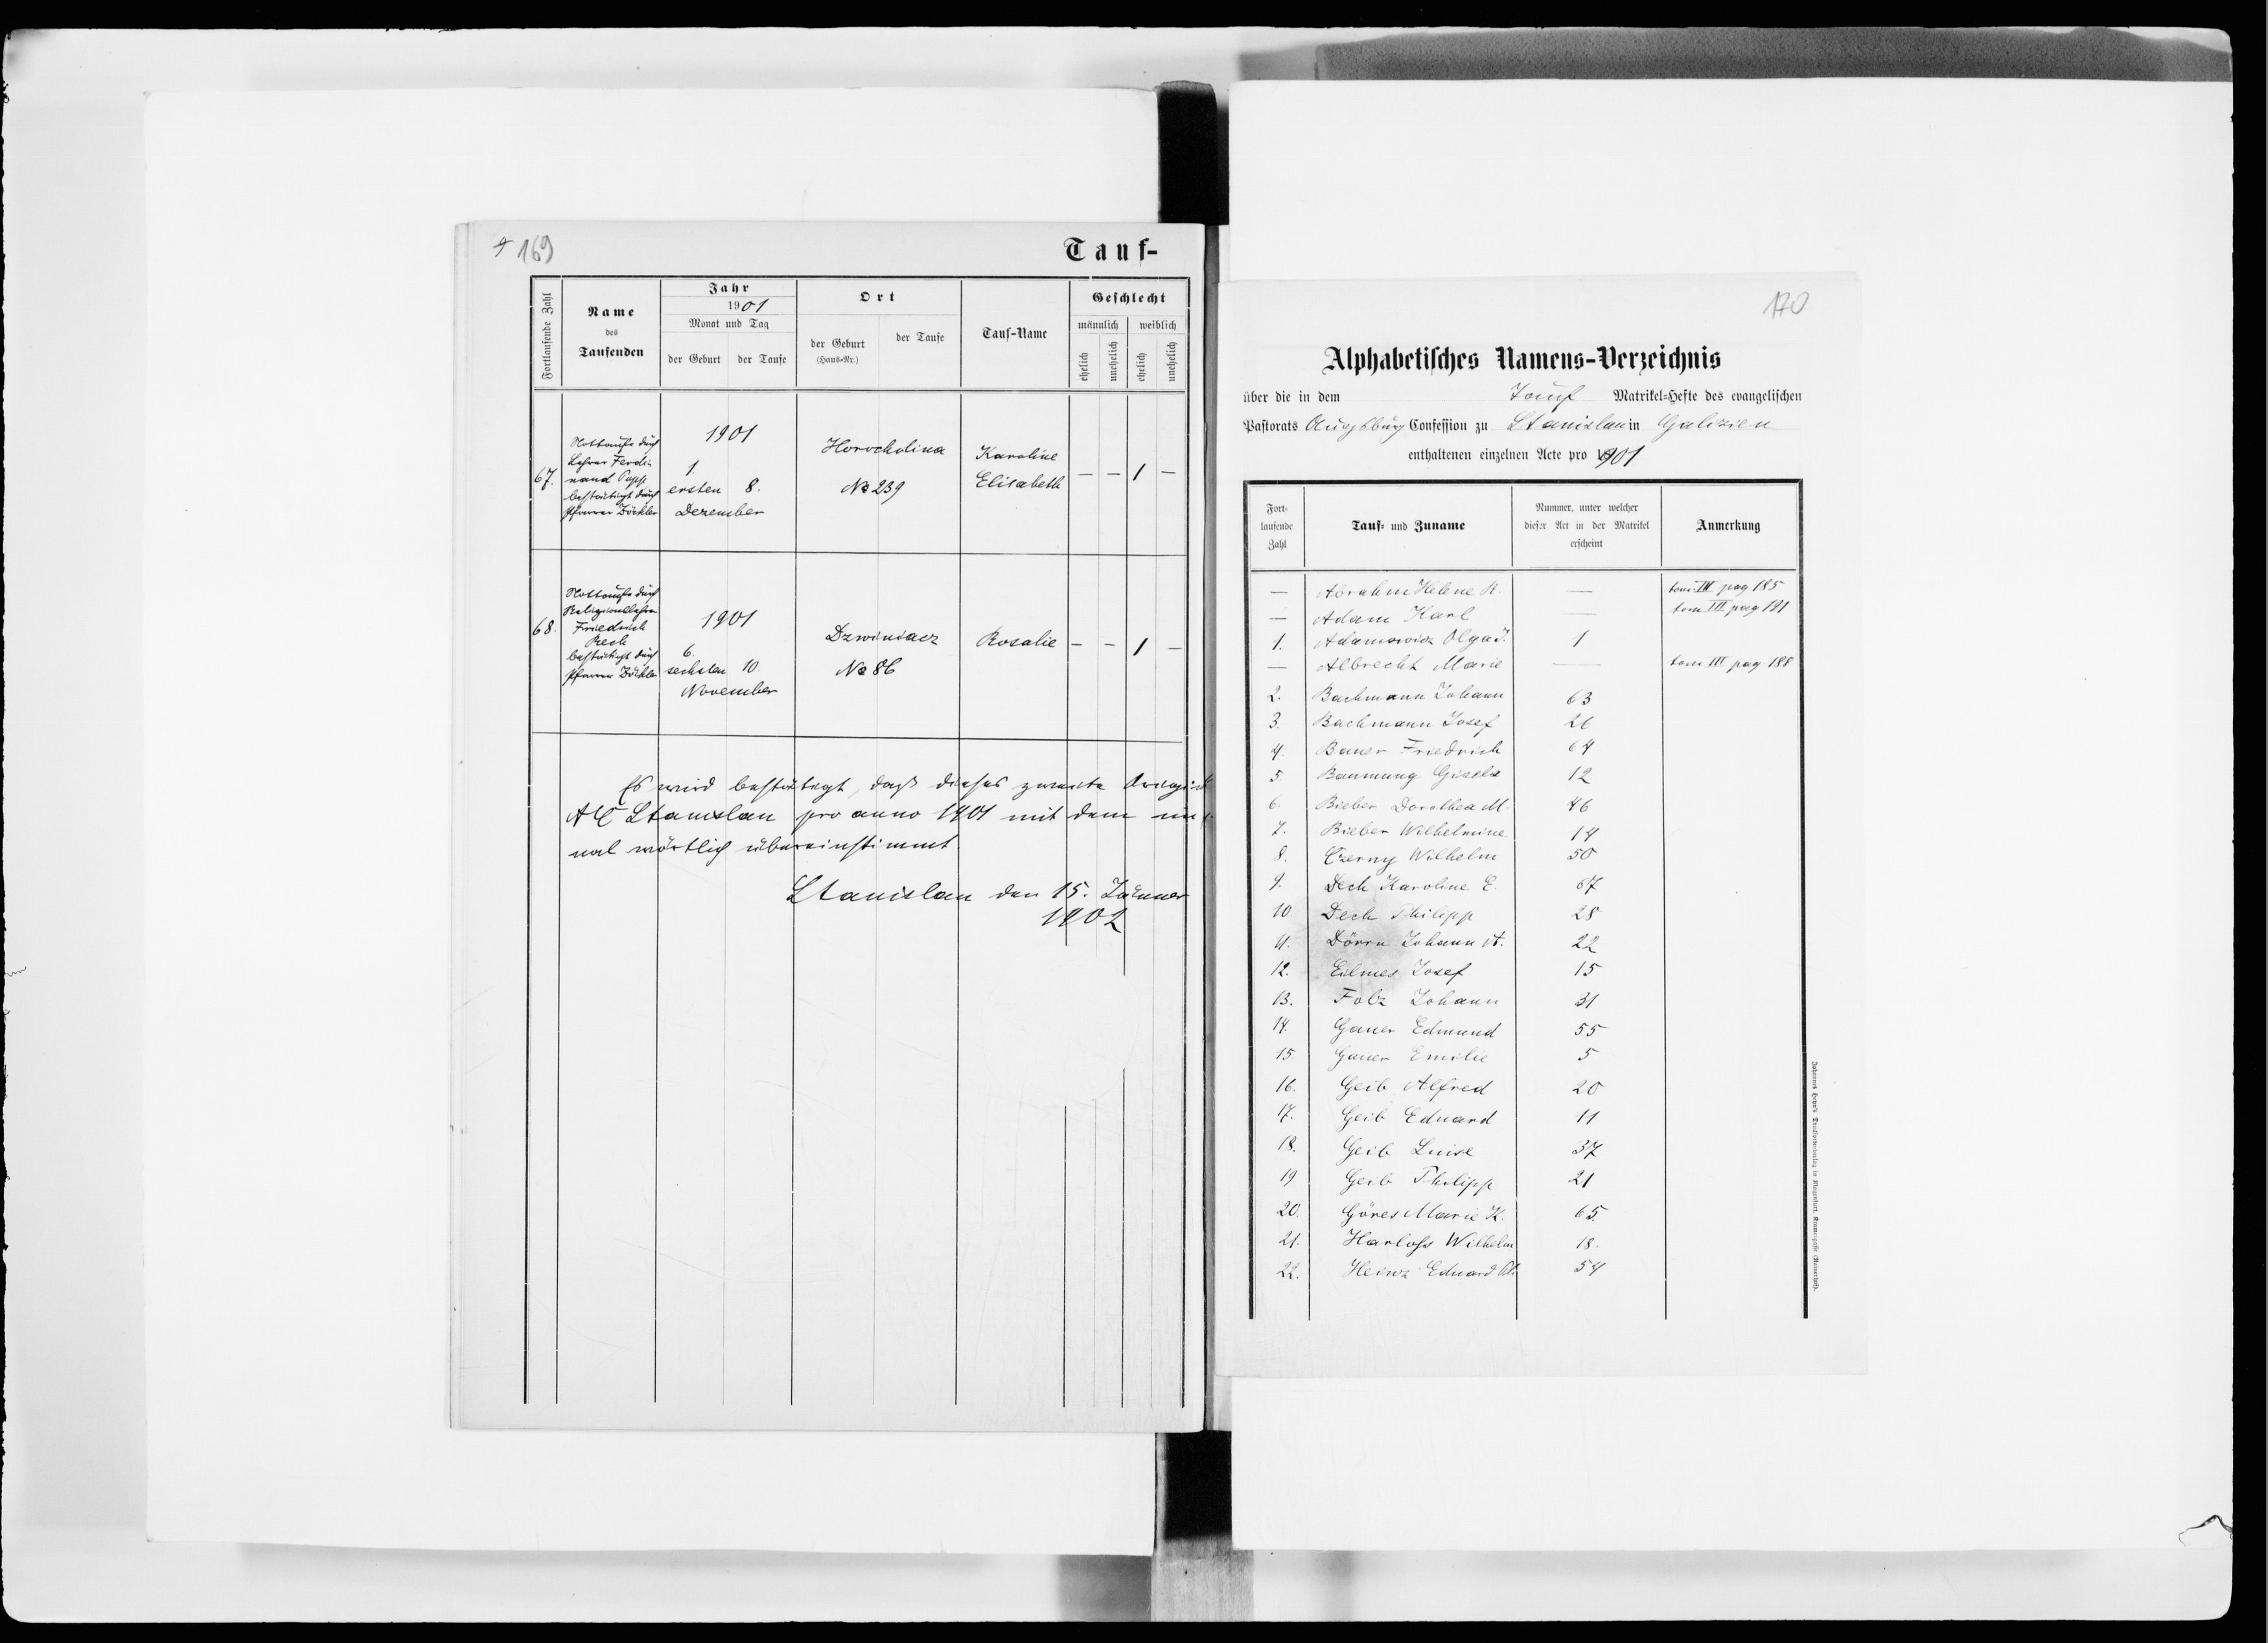 169
Tauf-
Fortlaufende Zahl
Name
des
Taufenden
Jahr
1901
Monat und Tag
der Geburt
der Taufe
Ort
der Geburt
(Haus-Nr.)
der Taufe
Tauf-Name
Geschlecht
männlich
weiblich
ehelich
unehelich
ehelich
unehelich
67.
Nottaufe durch
Lehrer Ferdi-
nand Popp
bestätigt durch
Pfarrer Zöckler
1901
1.
ersten 8.
Dezember
Horocholina
No 239
Karoline
Elisabeth
— — 1 —
68.
Nottaufe durch
Religionslehrer
Friedrich
Rech
bestätigt durch
Pfarrer Zöckler
1901
6.
sechsten 10.
November
Dzwiniacz
No 86
Rosalie
— — 1 —
Es wird bestätigt, daß dieses zweite
A C Stanislau pro anno 1901 mit dem
nal wörtlich übereinstimmt.
Stanislau den 15. Jänner
1902
170
Alphabetisches Namens-Verzeichnis
über die in dem Tauf Matrikel-Hefte des evangelischen
Pastorats Augsburg Confession zu Stanislau in Galizien
enthaltenen einzelnen Acte pro 1901
Fort-
laufende
Zahl
Tauf- und Zuname
Nummer, unter welcher
dieser Act in der Matrikel
erscheint
Anmerkung
— Abrahm Helene R. — tom III pag 185
— Adam Karl — tom III pag 191
1. Adamowicz Olga J. 1
— Albrecht Marie — tom III pag 188
2. Bachmann Johann 63
3. Bachmann Josef 26
4. Bauer Friedrich 64
5. Baumung Gisela 12
6. Bieber Dorothea M. 46
7. Bieber Wilhelmine 14
8. Czerny Wilhelm 50
9. Dech Karoline E. 67
10. Dech Philipp 28
11. Dörru Johann A. 22
12. Eilmes Josef 15
13. Folz Johann 31
14. Gauer Edmund 55
15. Gauer Emilie 5
16. Geib Alfred 20
17. Geib Eduard 11
18. Geib Luise 37
19 Geib Philipp 21
20. Göres Marie K. 65.
21. Harloß Wilhelm 18.
22. Heinz Eduard 54